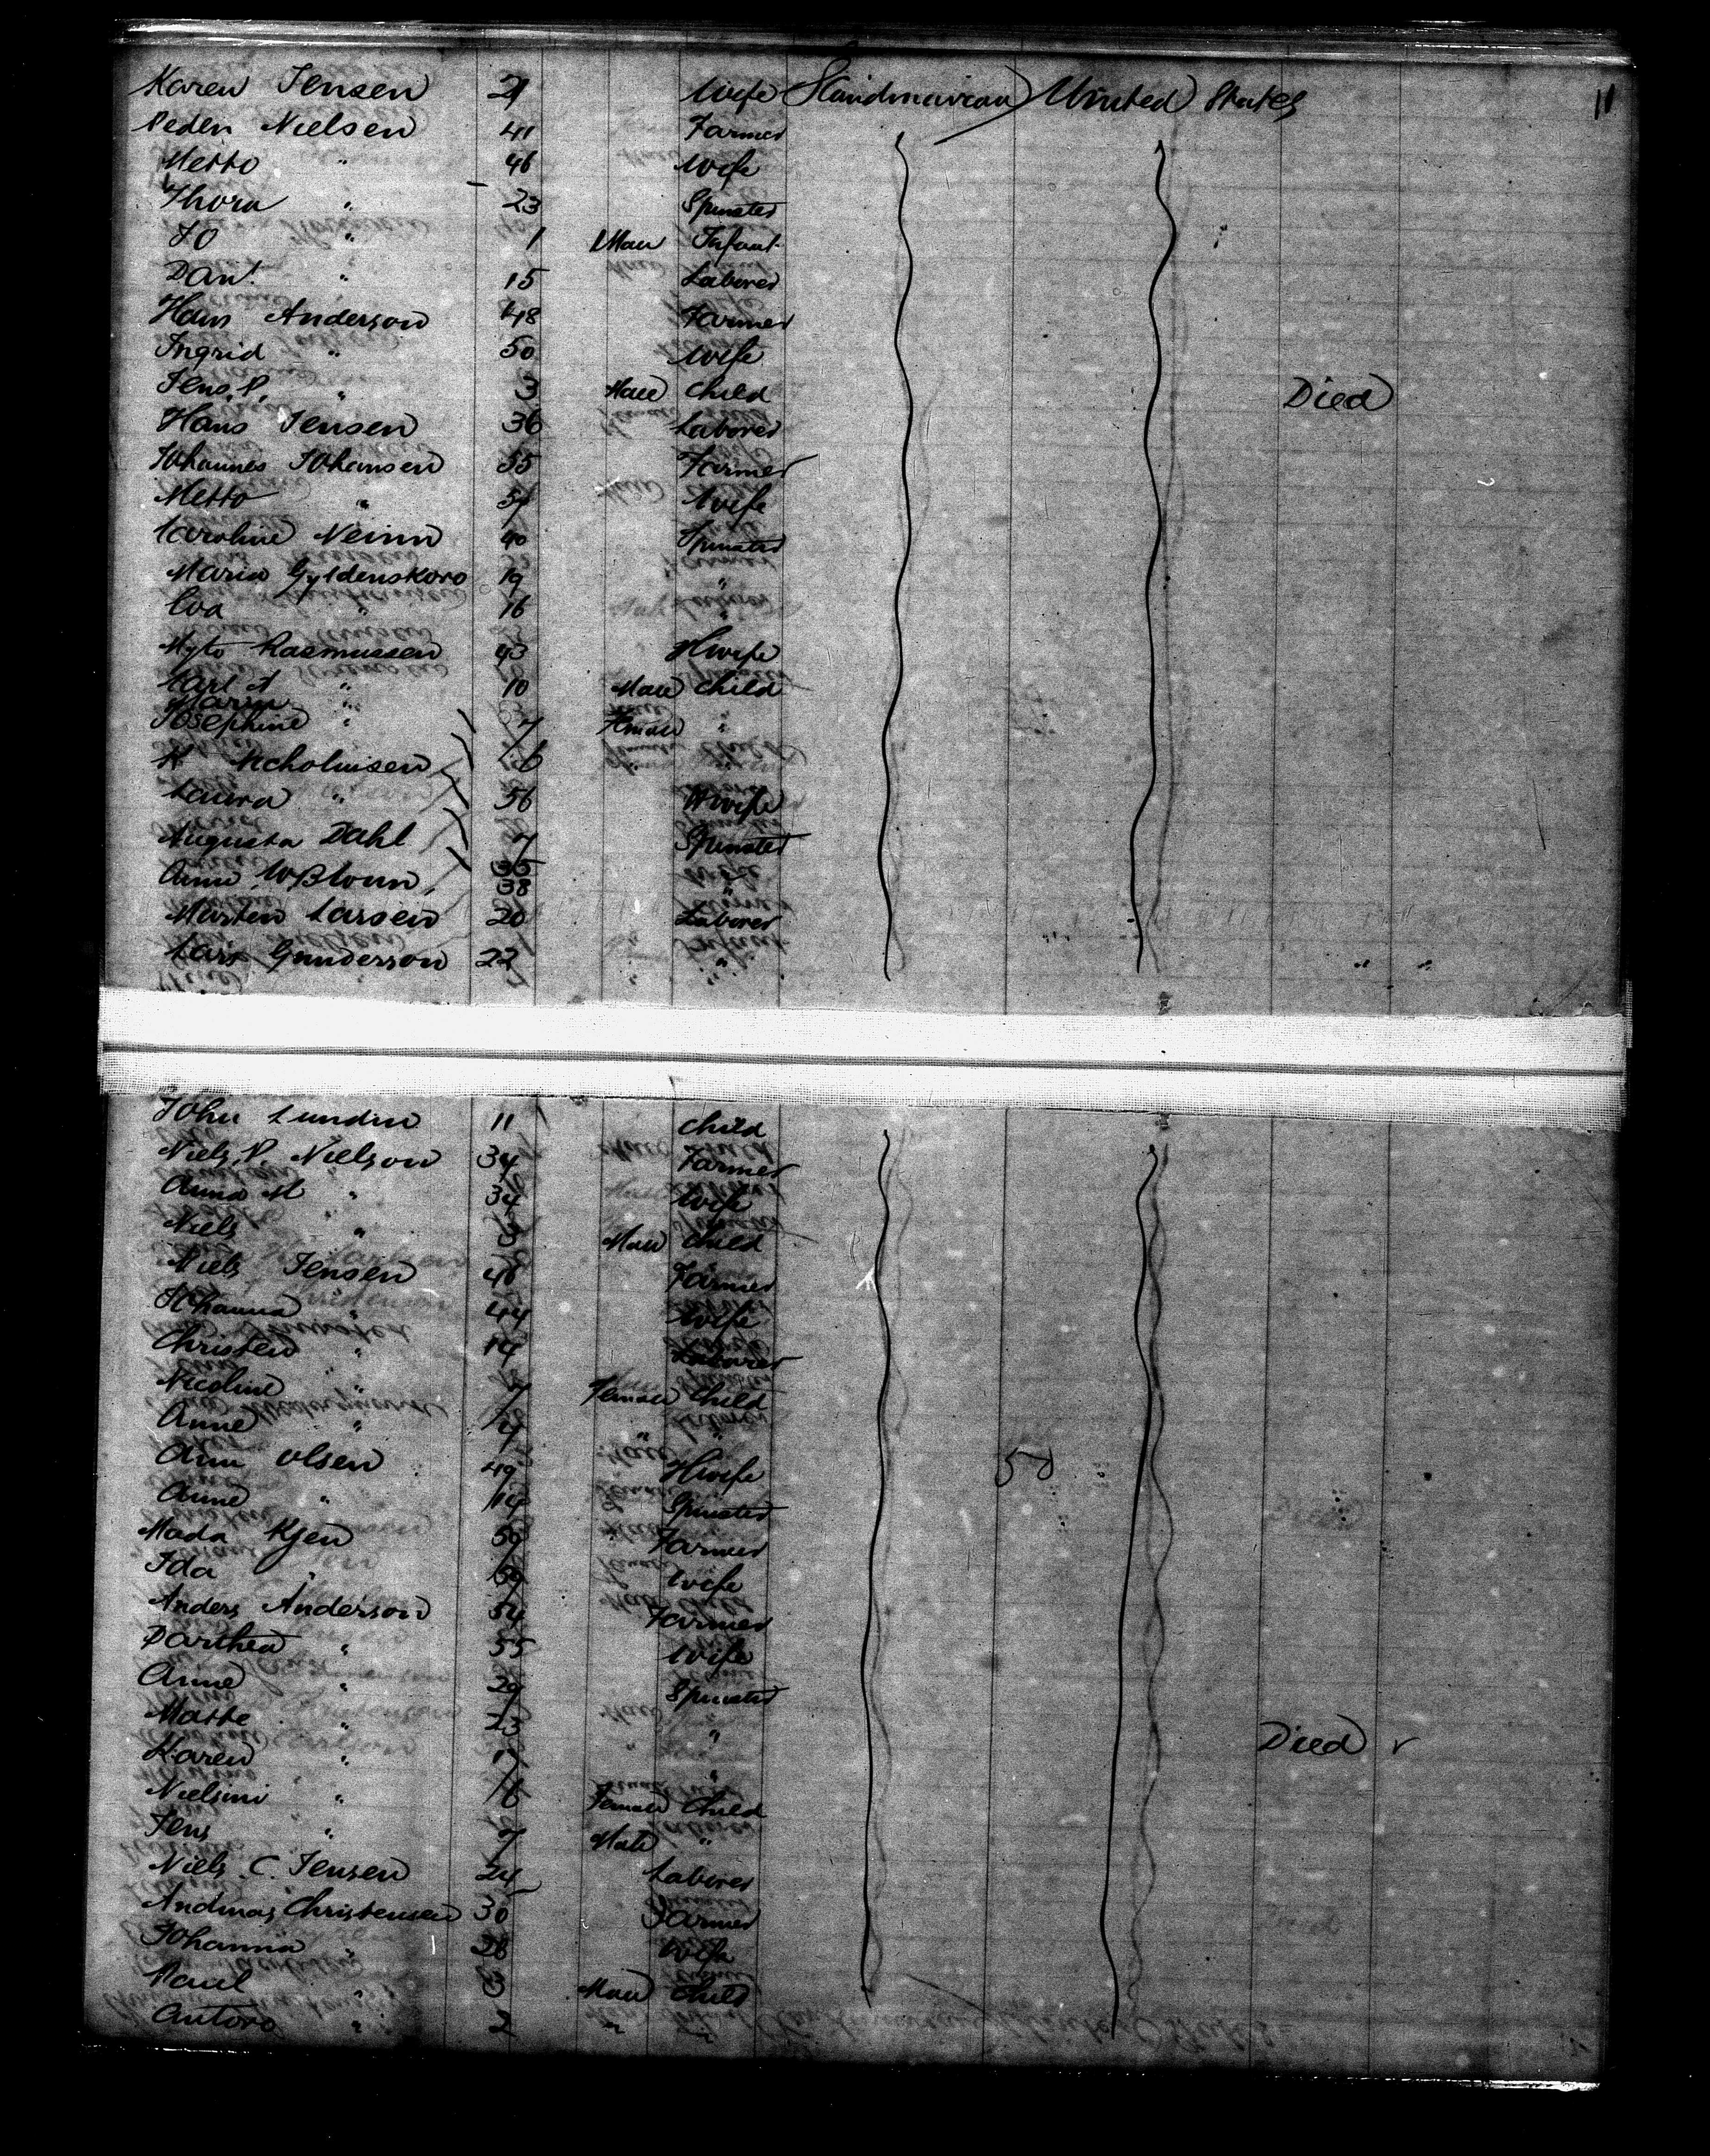 Karen Jensen 21 Wife Scandinavian United States 11
Peden Nielsen 41 Farmer
Metto " 46 Wife
Thora " 23 Spinster
JO " 1 Male Infant
Danl " 15 Laborer
Hans Anderson 48 Farmer
Ingrid " 50 Wife
Jens. P. " 3 Male Child Died
Hans Jensen 36 Laborer
Johannes Johansen 55 Farmer
Metto " 57 Wife
Caroline Neinn 40 Spinster
Maria Gyldenskoro 19 "
Eva " 16 "
Myto Rasmussen 43 Hwife
Karl A " 10 Male Child
Maren "
Josephine " 7 Female "
N Nicholuisen 6 "
Laura " 56 Hwife
Augusta Dahl 7 Spinster
Anne 35 Wife
38 "
Marten Larsen 20 Laborer
Lars Gunderson 22 "
John Lundin 11 Child
Niels. P. Nielson 34 Farmer
Anna M " 34 Wife
Niels " 3 Male Child
Niels Jensen 46 Farmer
Johanna " 44 Wife
Christen " 14 Laborer
Nicoline " 7 Female Child
Anne " 4 " "
Ann Olsen 49 Hwife 50
Anne " 14 Spinster
Mada Kjen 59 Farmer
Ida " 59 Wife
Anders Anderson 54 Farmer
Darthea " 55 Wife
Anne " 29 Spinster
Matte " 23 "
Karen " 17 " Died
Nielsini " 6 Female Child
Jens " 7 Male "
Niels. C. Jensen 24 Laborer
Andreas Christensen 30 Farmer
Johanna " 28 Wife
Paul " 3 Male Child
Antoro " 2 " "